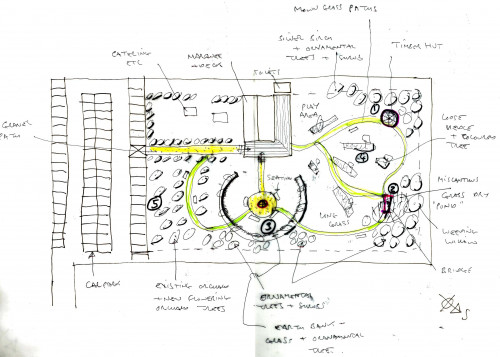 MOWN GRASS PATHS
SILVER BIRCH
+ ORNAMENTAL
TREES + SHRUBS
TIMBER HUT
CATERING
ETC
MARQUEE
+ DECK
TOILET
PLAY
AREA
1
LOOSE
HEDGE
+ COLOURED
TREE
GRAVEL
PATH
4
SEATING
2
MISCANTHUS
GRASS DRY
"POND"
5
3
LONG
GRASS
WEEPING
WILLOW
BRIDGE
CAR PARK
EXISTING ORCHARD
+ NEW FLOWERING
ORCHARD TREES
ORNAMENTAL
TREES + SHRUBS
EARTH BANK -
GRASS + ORNAMENTAL
TREE
S